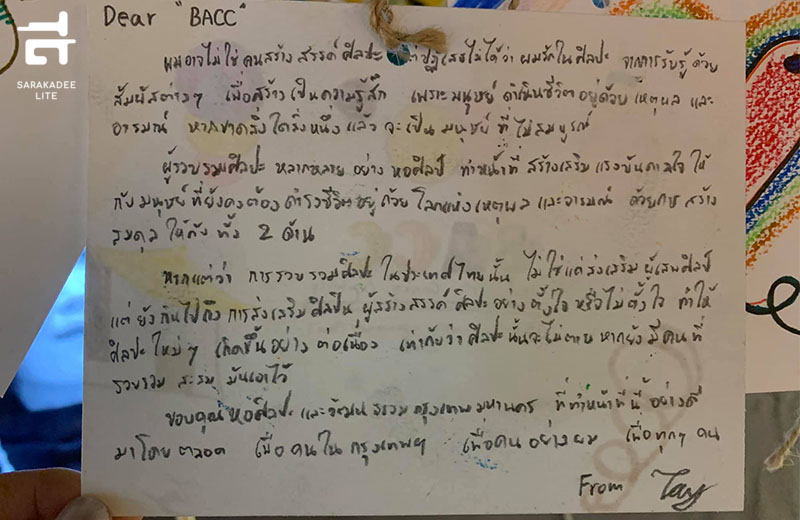 SARAKADEE
LITE
Dear "BACC"
ผมอาจไม่ใช่คนสร้างสรรค์ศิลปะ แต่ปฏิเสธไม่ได้ว่าผมรักในศิลปะ จากการรับรู้ด้วย
สัมผัสต่างๆ เพื่อสร้างเป็นความรู้สึก เพราะมนุษย์ดำเนินชีวิตอยู่ด้วยเหตุผล และ
อารมณ์ หากขาดสิ่งใดสิ่งหนึ่งแล้ว จะเป็นมนุษย์ที่ไม่สมบูรณ์
ผู้รวบรวมศิลปะ หลากหลายอย่าง หอศิลป์ ทำหน้าที่สร้างเสริมแรงบันดาลใจให้
กับมนุษย์ที่ยังคงต้องดำรงชีวิตอยู่ด้วย โลกแห่งเหตุผล และอารมณ์ ด้วยการสร้าง
สมดุลให้กับทั้ง 2 ด้าน
หากแต่ว่า การรวบรวมศิลปะในประเทศไทยนั้น ไม่ใช่แค่ส่งเสริมผู้เสพศิลป์
แต่ยังกินไปถึงการส่งเสริมศิลปิน ผู้สร้างสรรค์ศิลปะอย่างตั้งใจ หรือไม่ตั้งใจ ทำให้
ศิลปะใหม่ๆ เกิดขึ้นอย่างต่อเนื่อง เท่ากับว่าศิลปะนั้นจะไม่ตาย หากยังมีคนที่
รวบรวม สะสม มันเอาไว้
ขอบคุณหอศิลปะและวัฒนธรรมกรุงเทพมหานคร ที่ทำหน้าที่นี้อย่างดี
มาโดยตลอด เพื่อคนในกรุงเทพฯ เพื่อคนอย่างผม เพื่อทุกๆ คน
From Tay